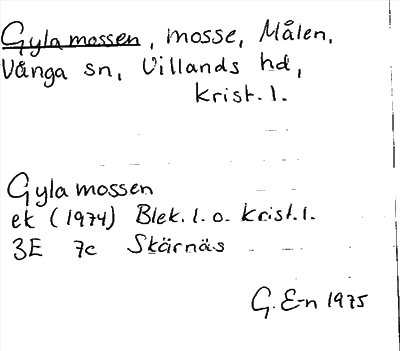 Gylamossen, mosse, Målen,
Vånga sn, Villands hd,
krist. l.
Gylamossen
ek (1974) Blek. l. o. krist. l.
3E 7c Skärnäs
G. E-n 1975